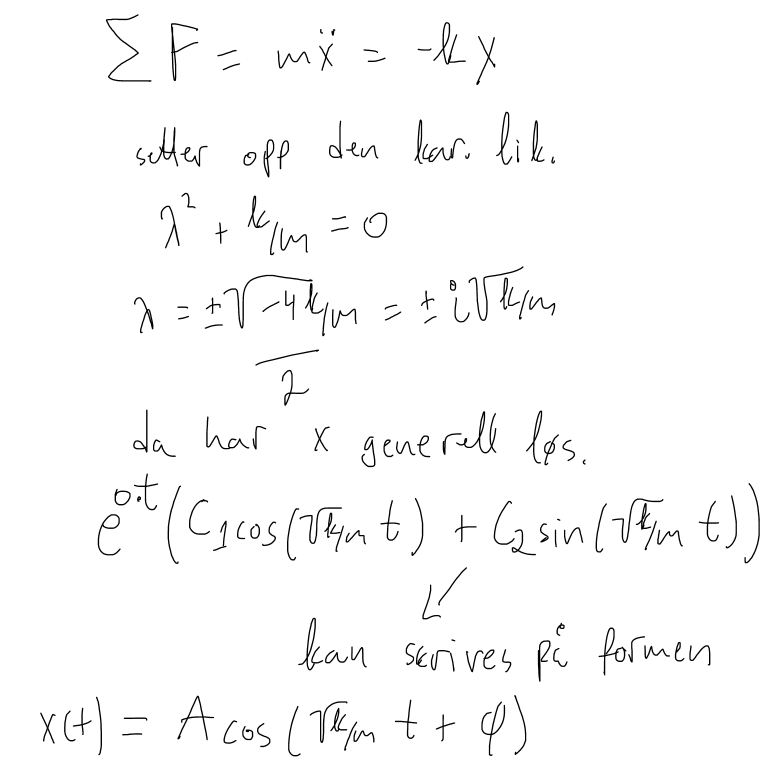 ∑F = mẍ = -kx
setter opp den kar. lik.
λ² + k/m = 0
λ = ±√-4k/m = ±i√k/m
2
da har x generell løs.
e^0·t (C₁cos(√k/m t) + C₂ sin(√k/m t))
↙
kan skrives på formen
x(t) = A cos(√k/m t + φ)